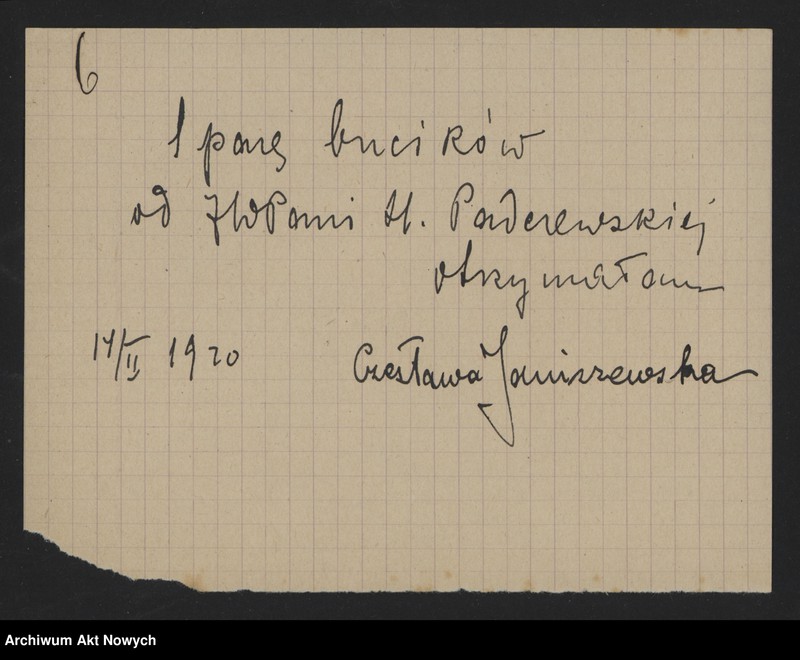 6
1 parę bucików
od JWPani H. Paderewskiej
otrzymałam
14/II 1920
Czesława Janiszewska
Archiwum Akt Nowych